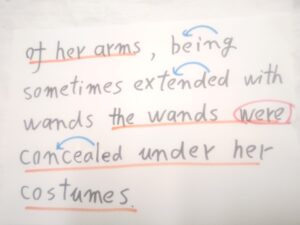 of her arms, being
sometimes extended with
wands the wands were
concealed under her
costumes.